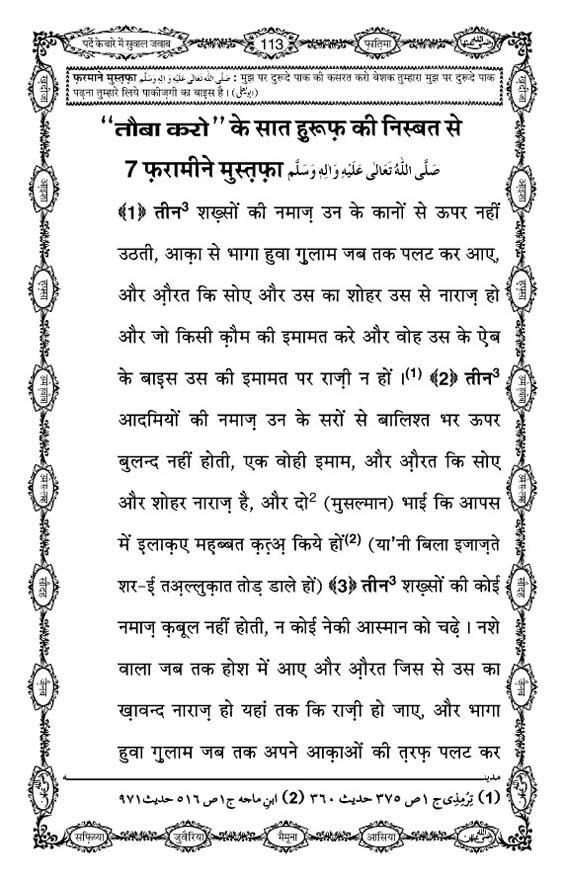 पर्दे के बारे में सुवाल जवाब
113
फ़ातिमा
फ़रमाने मुस्तफ़ा صَلَّى اللهُ تَعَالٰى عَلَيْهِ وَاٰلِهٖ وَسَلَّم : मुझ पर दुरूदे पाक की कसरत करो बेशक तुम्हारा मुझ पर दुरूदे पाक
पढ़ना तुम्हारे लिये पाकीज़गी का बाइस है। (ابویعلیٰ)
“तौबा करो” के सात हुरूफ़ की निस्बत से
7 फ़रामीने मुस्त़फ़ा صَلَّى اللهُ تَعَالٰى عَلَيْهِ وَاٰلِهٖ وَسَلَّم
﴾1﴿ तीन³ शख़्सों की नमाज़ उन के कानों से ऊपर नहीं
उठती, आक़ा से भागा हुवा ग़ुलाम जब तक पलट कर आए,
और औ़रत कि सोए और उस का शोहर उस से नाराज़ हो
और जो किसी क़ौम की इमामत करे और वोह उस के ऐ़ब
के बाइस उस की इमामत पर राज़ी न हों ।⁽¹⁾ ﴾2﴿ तीन³
आदमियों की नमाज़ उन के सरों से बालिश्त भर ऊपर
बुलन्द नहीं होती, एक वोही इमाम, और औ़रत कि सोए
और शोहर नाराज़ है, और दो² (मुसल्मान) भाई कि आपस
में इलाक़ए महब्बत क़त़्अ़ किये हों⁽²⁾ (या'नी बिला इजाज़ते
शर-ई तअ़ल्लुक़ात तोड़ डाले हों) ﴾3﴿ तीन³ शख़्सों की कोई
नमाज़ क़बूल नहीं होती, न कोई नेकी आस्मान को चढ़े । नशे
वाला जब तक होश में आए और औ़रत जिस से उस का
ख़ावन्द नाराज़ हो यहां तक कि राज़ी हो जाए, और भागा
हुवा ग़ुलाम जब तक अपने आक़ाओं की त़रफ़ पलट कर
مدینہ
(1) تِرْمِذِی ج ١ ص ٣٧٥ حدیث ٣٦٠ (2) ابن ماجہ ج١ ص ٥١٦ حدیث ٩٧١
सफ़िय्या
जुवैरिया
मैमूना
आसिया